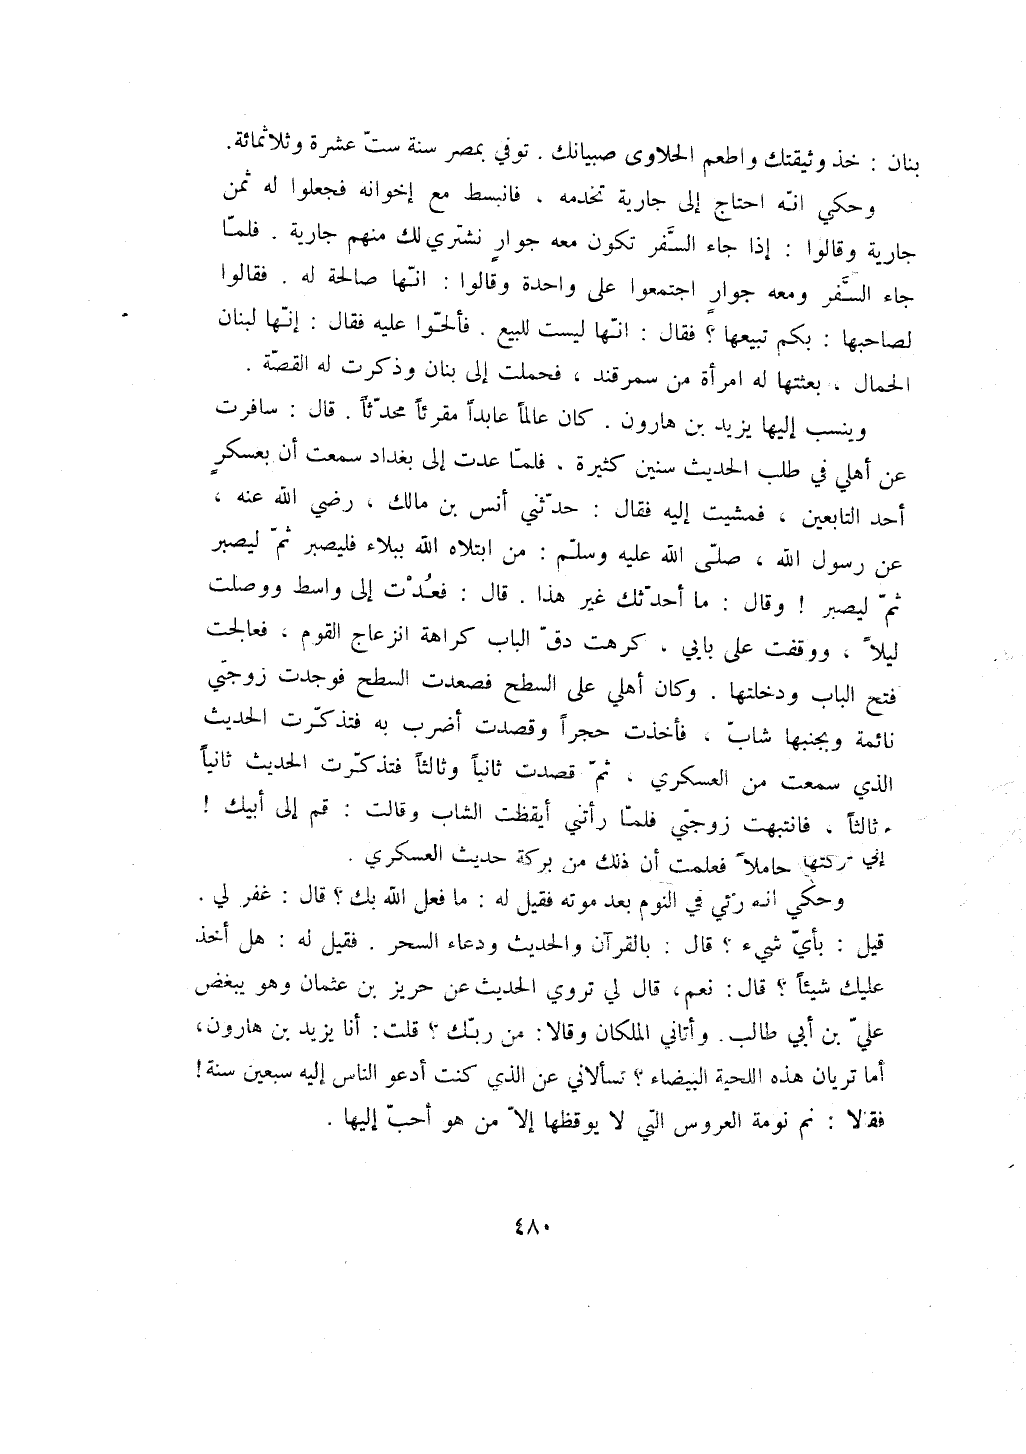 بنان : خذ وثيقتك واطعم الحلاوى صبيانك . توفي بمصر سنة ستّ عشرة وثلاثمائة.
وحكي انّه احتاج إلى جارية تخدمه ، فانبسط مع إخوانه فجعلوا له ثمن
جارية وقالوا : إذا جاء السَّفر تكون معه جوارٍ نشتري لك منهم جارية . فلمّا
جاء السَّفر ومعه جوارٍ اجتمعوا على واحدة وقالوا : انّها صالحة له . فقالوا
لصاحبها : بكم تبيعها ؟ فقال : انّها ليست للبيع . فألحّوا عليه فقال : إنّها لبنان
الحمال ، بعثتها له امرأة من سمرقند ، فحملت إلى بنان وذكرت له القصّة .
وينسب إليها يزيد بن هارون . كان عالماً عابداً مقرئاً محدّثاً . قال : سافرت
عن أهلي في طلب الحديث سنين كثيرة ، فلمّا عدت إلى بغداد سمعت أن بعسكرٍ
أحد التابعين ، فمشيت إليه فقال : حدّثني أنس بن مالك ، رضي الله عنه ،
عن رسول الله ، صلّى الله عليه وسلّم : من ابتلاه الله ببلاء فليصبر ثمّ ليصبر
ثمّ ليصبر ! وقال : ما أحدّثك غير هذا . قال : فعُدْت إلى واسط ووصلت
ليلاً ، ووقفت على بابي ، كرهت دقّ الباب كراهة انزعاج القوم ، فعالجت
فتح الباب ودخلتها . وكان أهلي على السطح فصعدت السطح فوجدت زوجتي
نائمة وبجنبها شابّ ، فأخذت حجراً وقصدت أضرب به فتذكّرت الحديث
الذي سمعت من العسكري ، ثمّ قصدت ثانياً وثالثاً فتذكّرت الحديث ثانياً
وثالثاً ، فانتبهت زوجتي فلمّا رأتني أيقظت الشاب وقالت : قم إلى أبيك !
إني تركتها حاملاً فعلمت أن ذلك من بركة حديث العسكري .
وحكي انه رئي في النوم بعد موته فقيل له : ما فعل الله بك ؟ قال : غفر لي .
قيل : بأيّ شيء ؟ قال : بالقرآن والحديث ودعاء السحر . فقيل له : هل أخذ
عليك شيئاً ؟ قال : نعم، قال لي تروي الحديث عن حريز بن عثمان وهو يبغض
عليّ بن أبي طالب. وأتاني الملكان وقالا: من ربّك ؟ قلت: أنا يزيد بن هارون،
أما تريان هذه اللحية البيضاء ؟ تسألاني عن الذي كنت أدعو الناس إليه سبعين سنة!
فقالا : نم نومة العروس التي لا يوقظها إلاّ من هو أحبّ إليها .
٤٨٠